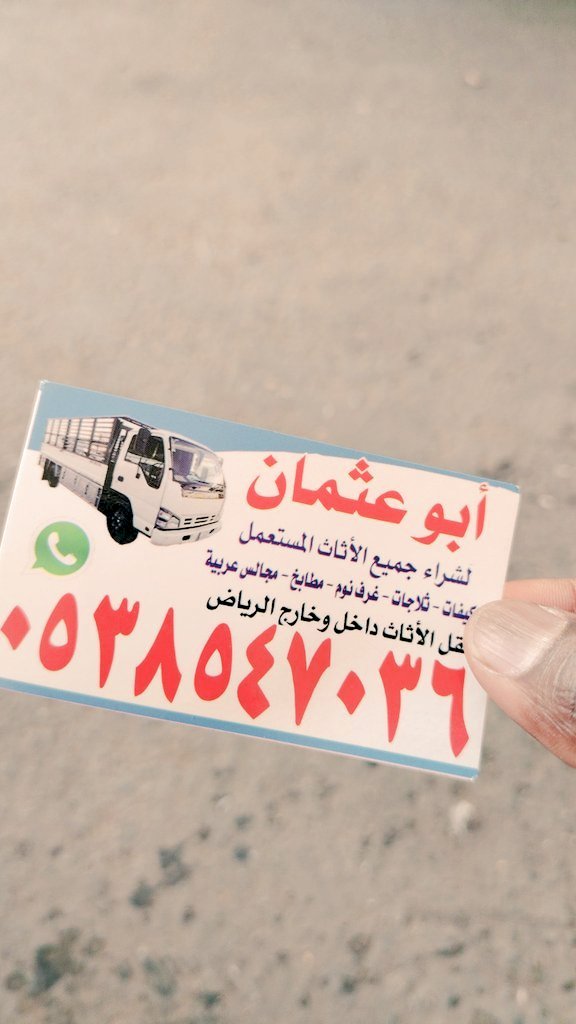 أبو عثمان
لشراء جميع الأثاث المستعمل
- ثلاجات - غرف نوم - مطابخ - مجالس عربية
الأثاث داخل وخارج الرياض
٠٥٣٨٥٤٧٠٣٦